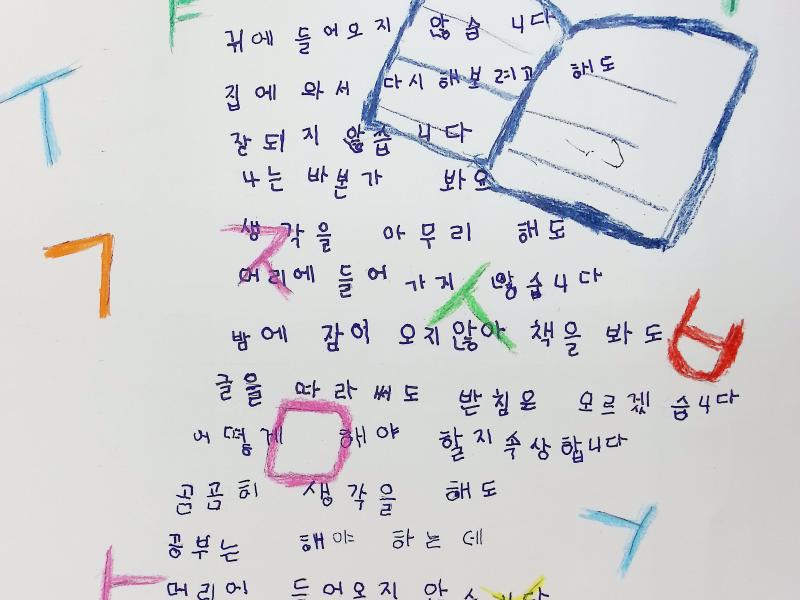 귀에 들어오지 않습니다
집에 와서 다시 해보려고 해도
잘되지 않습니다
나는 바본가 봐요
생각을 아무리 해도
머리에 들어 가지 않습니다
밤에 잠이 오지않아 책을 봐도
글을 따라써도 받침은 모르겠습니다
어떻게 해야 할지 속상합니다
곰곰히 생각을 해도
공부는 해야 하는데
머리에 들어오지 안습니다